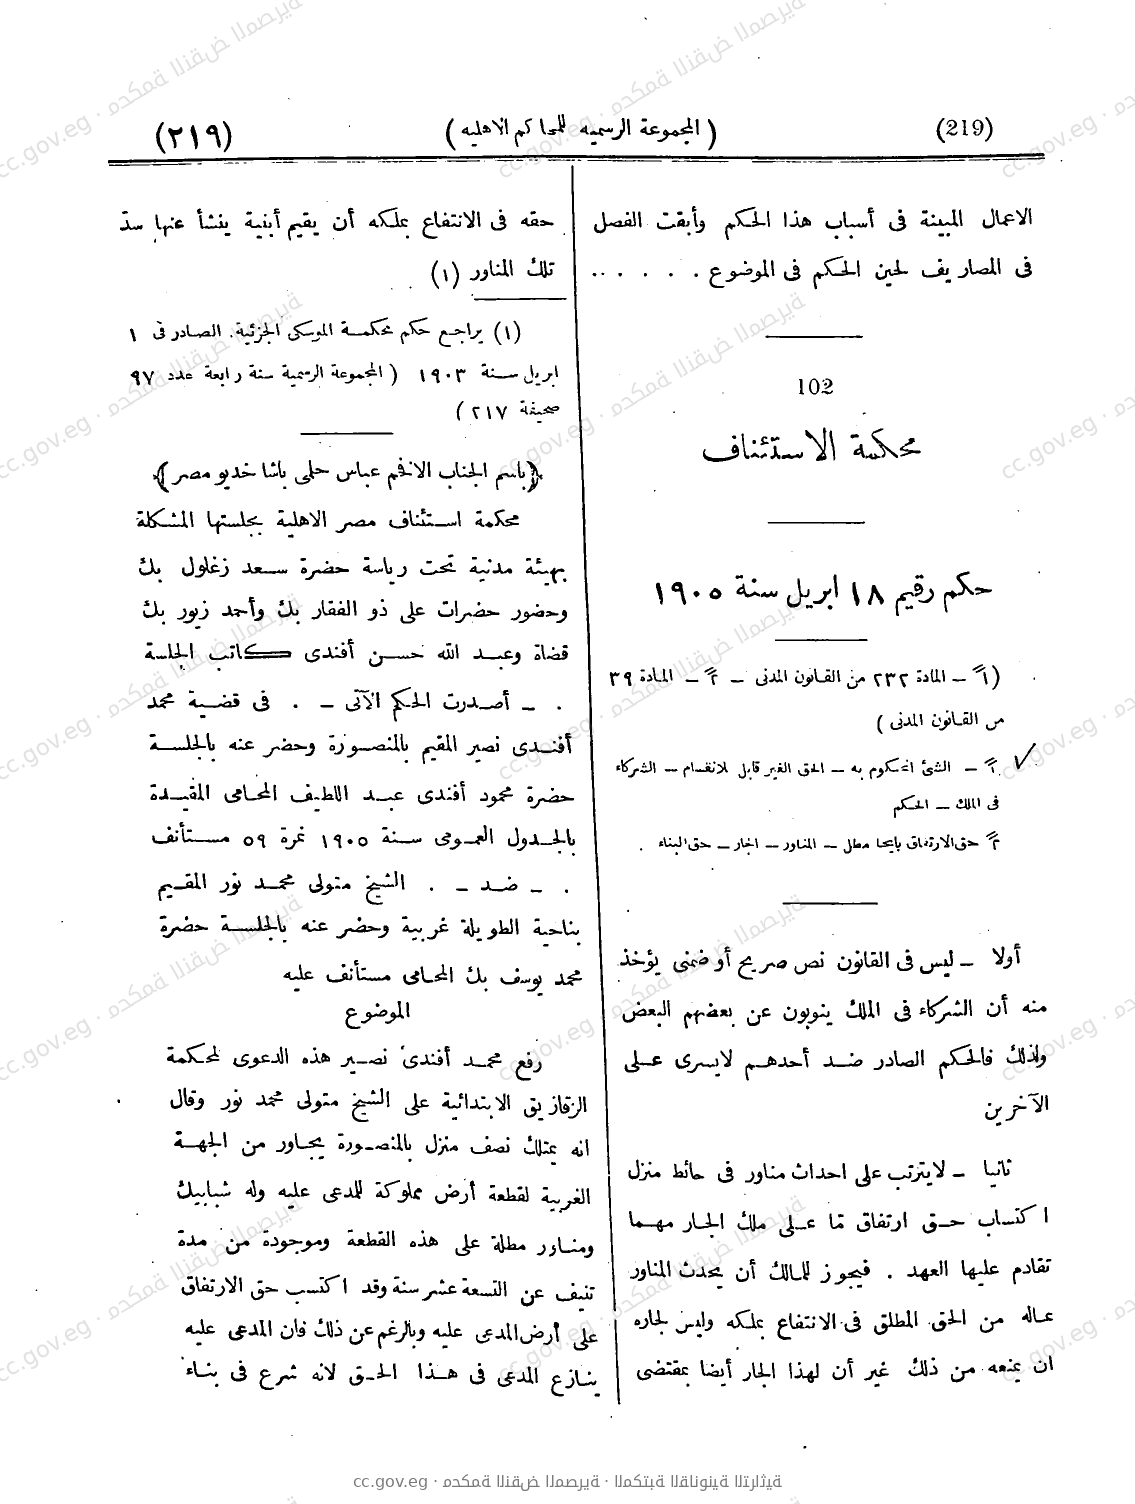 (219)
( المجموعة الرسميه للمحاكم الاهليه )
(٢١٩)
الاعمال المبينة فى أسباب هذا الحكم وأبقت الفصل
فى المصاريف لحين الحكم فى الموضوع . . . . . ..
102
محكمة الاستئناف
حكم رقيم ١٨ ابريل سنة ١٩٠٥
(١ً – المادة ٢٣٢ من القانون المدنى – ٢ً – المادة ٣٩
من القانون المدنى )
١ً – الشئ المحكوم به – الحق الغير قابل للانقسام – الشركاء
فى الملك – الحكم
٢ً حق الارتفاق بايحا مطل – المناور – الجار – حق البناء .
أولا – ليس فى القانون نص صريح أو ضمنى يؤخذ
منه أن الشركاء فى الملك ينوبون عن بعضهم البعض
ولذلك فالحكم الصادر ضد أحدهم لايسرى على
الآخرين
ثانيا – لايترتب على احداث مناور فى حائط منزل
اكتساب حق ارتفاق مّا على ملك الجار مهما
تقادم عليها العهد . فيجوز للمالك أن يحدث المناور
عاله من الحق المطلق فى الانتفاع بملكه وليس لجاره
ان يمنعه من ذلك غير أن لهذا الجار أيضا بمقتضى
حقه فى الانتفاع بملكه أن يقيم أبنية ينشأ عنها سدّ
تلك المناور (١)
(١) يراجع حكم محكمة الموسكى الجزئية. الصادر فى ١
ابريل سنة ١٩٠٣ ( المجموعة الرسمية سنة رابعة عدد ٩٧
صحيفة ٢١٧ )
﴿باسم الجناب الافخم عباس حلمى باشا خديو مصر﴾
محكمة استئناف مصر الاهلية بجلستها المشكلة
بهيئة مدنية تحت رياسة حضرة سعد زغلول بك
وحضور حضرات على ذو الفقار بك وأحمد زيور بك
قضاة وعبد الله حسن أفندى كاتب الجلسة
. – أصدرت الحكم الآتى – . فى قضية محمد
أفندى نصير المقيم بالمنصورة وحضر عنه بالجلسة
حضرة محمود أفندى عبد اللطيف المحامى المقيدة
بالجدول العمومى سنة ١٩٠٥ نمرة ٥٩ مستأنف
. – ضد – . الشيخ متولى محمد نور المقيم
بناحية الطويلة غربية وحضر عنه بالجلسة حضرة
محمد يوسف بك المحامى مستأنف عليه
الموضوع
رفع محمد أفندى نصير هذه الدعوى لمحكمة
الزقازيق الابتدائية على الشيخ متولى محمد نور وقال
انه يمتلك نصف منزل بالمنصورة يجاور من الجهة
الغربية لقطعة أرض مملوكة للمدعى عليه وله شبابيك
ومناور مطلة على هذه القطعة وموجودة من مدة
تنيف عن التسعة عشر سنة وقد اكتسب حق الارتفاق
على أرض المدعى عليه وبالرغم عن ذلك فان المدعى عليه
ينازع المدعى فى هذا الحق لانه شرع فى بناء
cc.gov.eg · محكمة النقض المصرية · المكتبة القانونية التراثية